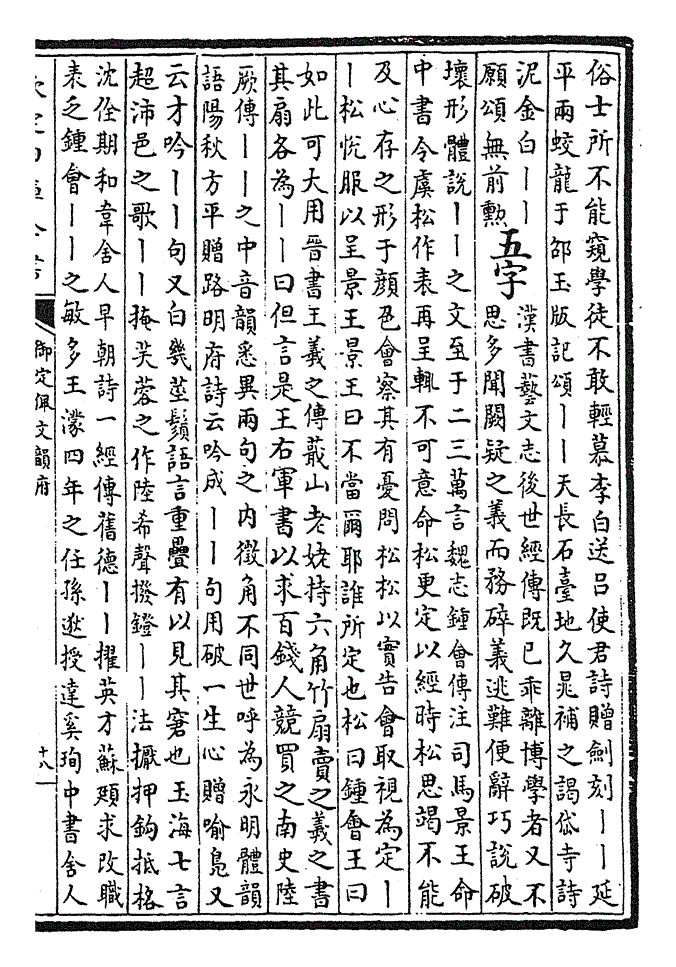 俗士所不能窺學徒不敢輕慕李白送呂使君詩贈劍刻丨丨延
平兩蛟龍于邵玉版記頌丨丨天長石臺地久晁補之謁岱寺詩
泥金白丨丨
願頌無前勲
五字
漢書藝文志後世經傳既已乖離博學者又不
思多聞闕疑之義而務碎義逃難便辭巧說破
壞形體說丨丨之文至于二三萬言魏志鍾會傳注司馬景王命
中書令虞松作表再呈輒不可意命松更定以經時松思竭不能
及心存之形于顔色會察其有憂問松松以實告會取視為定丨
丨松悅服以呈景王景王曰不當爾耶誰所定也松曰鍾會王曰
如此可大用晉書王羲之傳蕺山老姥持六角竹扇賣之羲之書
其扇各為丨丨曰但言是王右軍書以求百錢人競買之南史陸
厥傳丨丨之中音韻悉異兩句之内徵角不同世呼為永明體韻
語陽秋方平贈路明府詩云吟成丨丨句用破一生心贈喻鳬又
云才吟丨丨句又白幾莖鬚語言重疊有以見其窘也玉海七言
超沛邑之歌丨丨掩芙蓉之作陸希聲撥鐙丨丨法擫押鈎抵格
沈佺期和韋舍人早朝詩一經傳舊德丨丨擢英才蘇頲求改職
表乏鍾會丨丨之敏多王濛四年之任孫逖授達奚珣中書舍人
欽定四庫全書
御定佩文韻府
十八